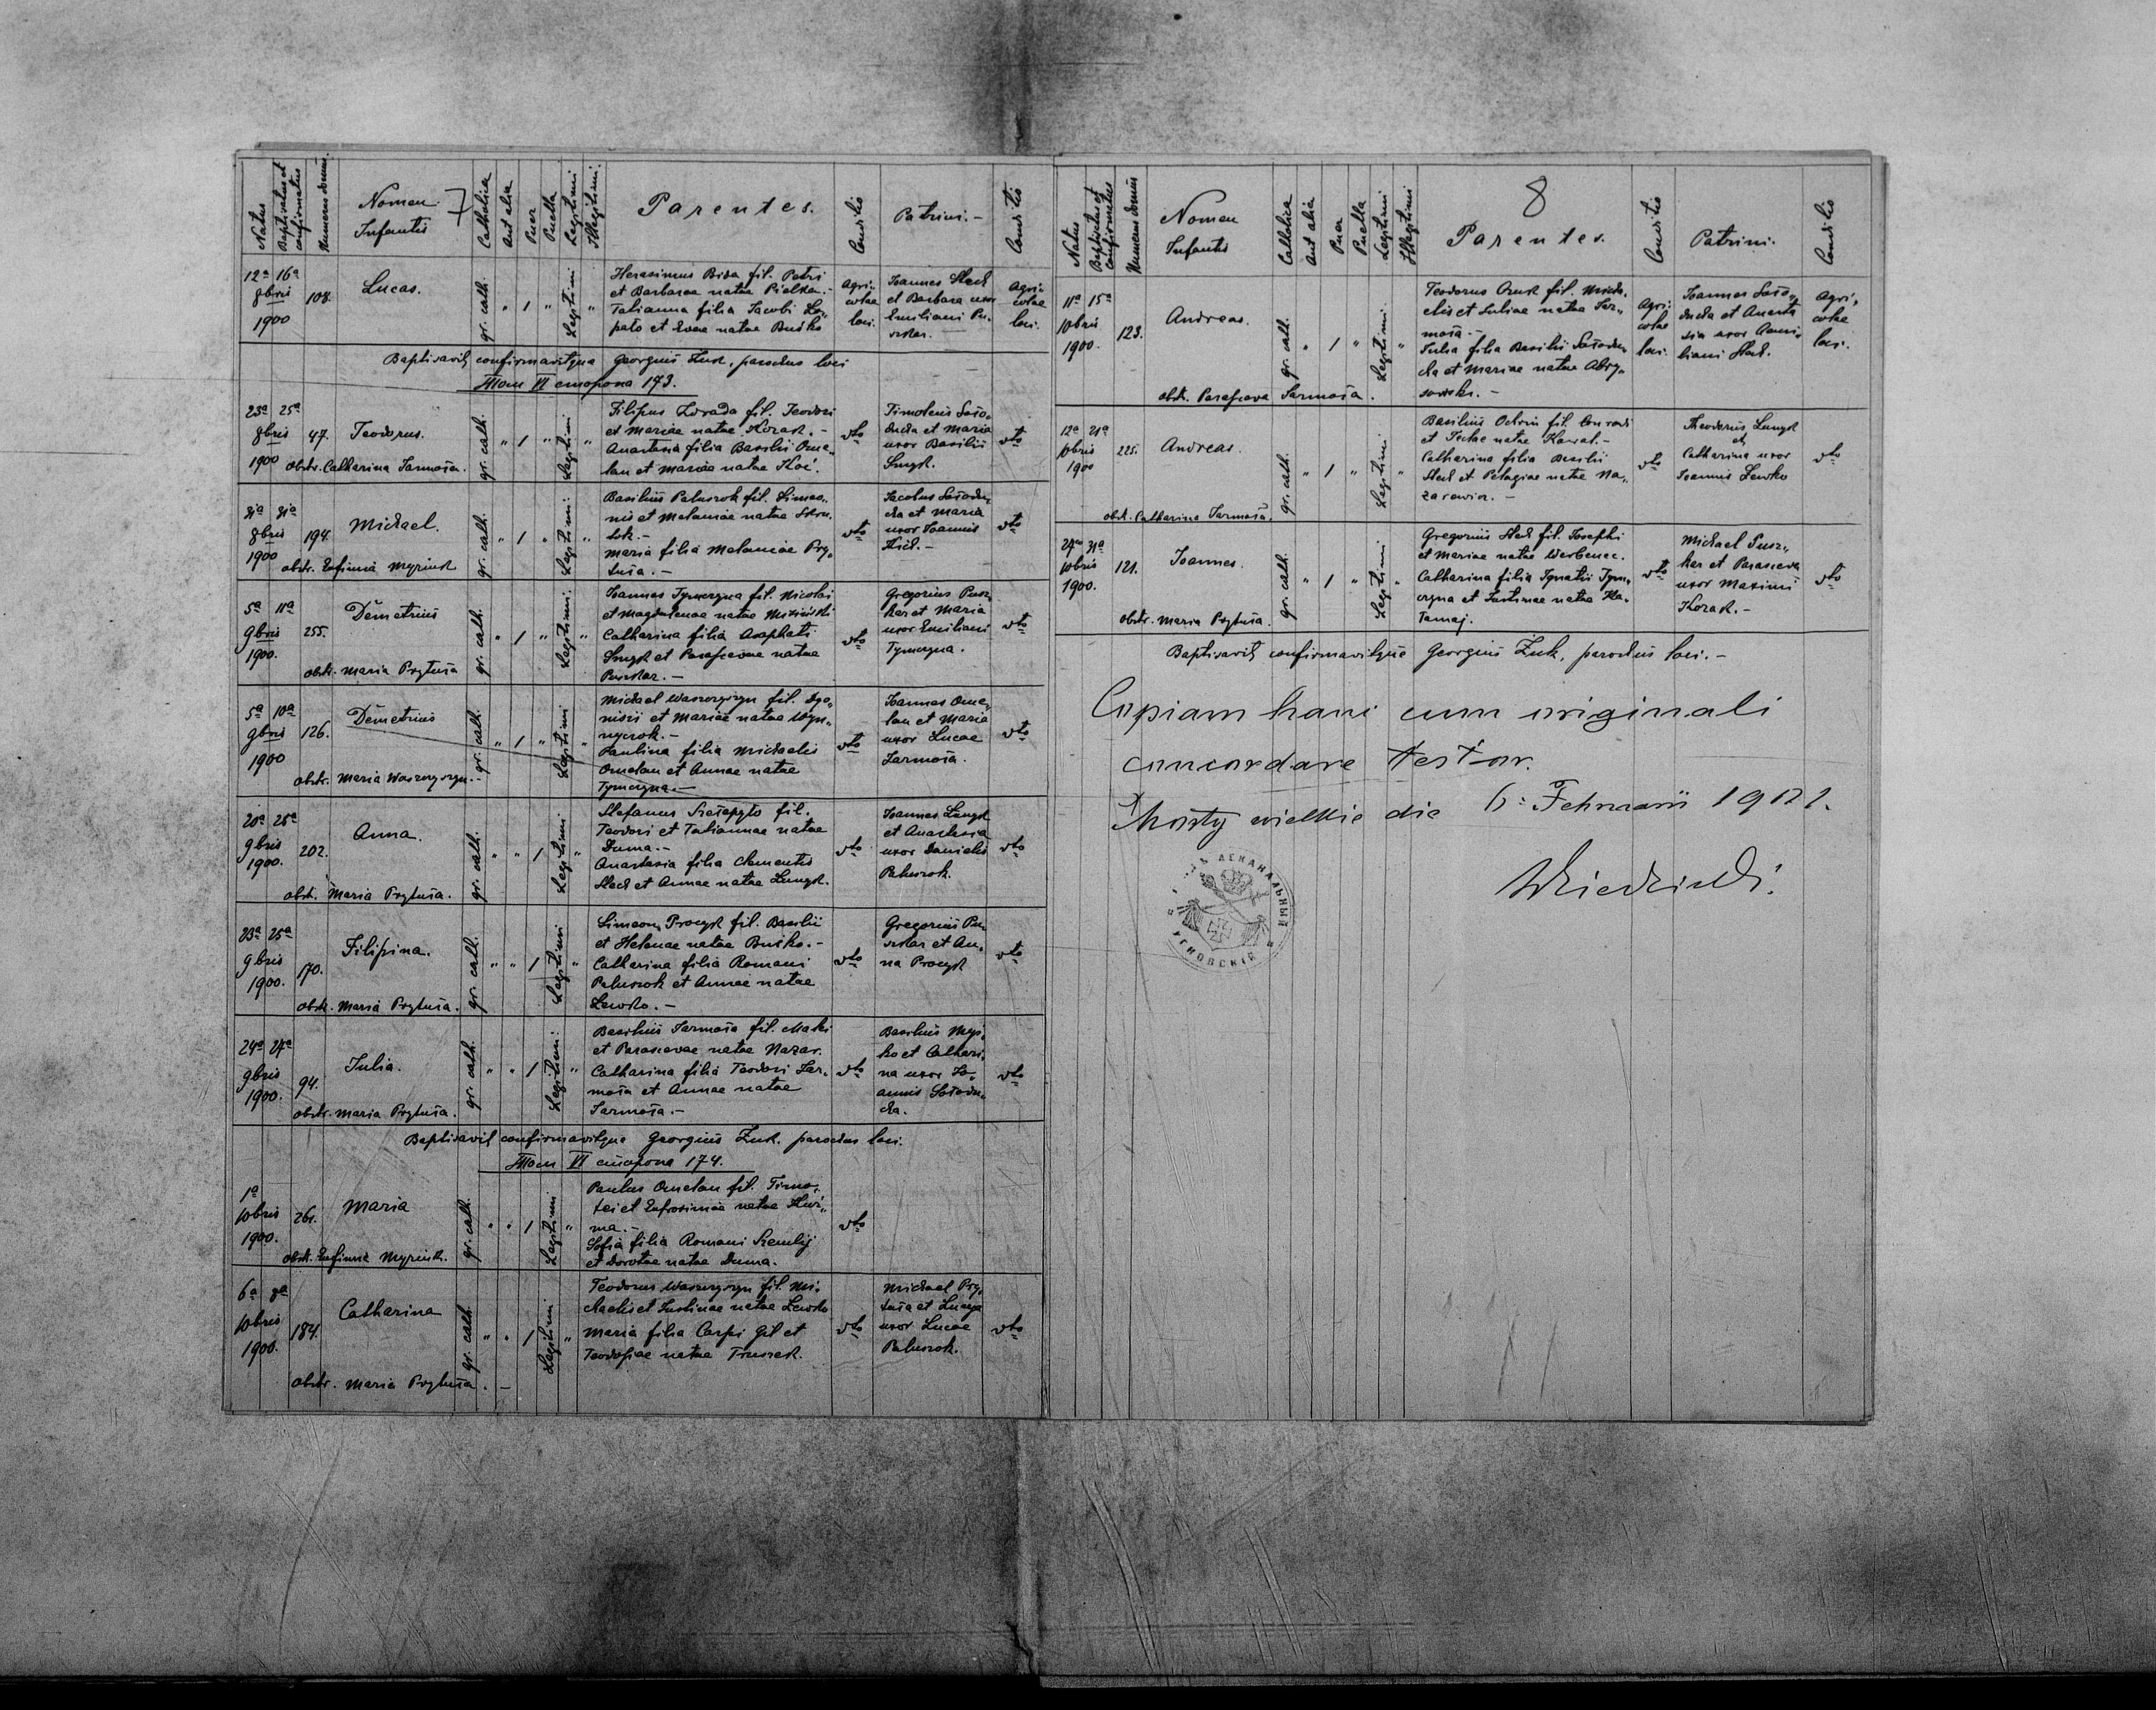 Natus
Baptisatus et confirmatus
Numerus domus
Nomen Infantis
7
Catholica
Aut alia
Puer
Puella
Legitimi
Illegitimi.
Parentes.
Conditio
Patrini.-
Conditio
12ª 16ª
8bris
1900
108.
Lucas.
gr. cath.
" 1 "
Legitimi
"
Herasimus Bida fil. Petri
et Barbarae natae Pielka.-
Tatianna filia Jacobi Lo„
pato et Evae natae Buśko
Agri„
colae
loci.
Joannes Stech
et Barbara uxor
Emiliani Pu„
char.
Agri„
colae
loci.
Baptisavit confirmavitque Georgius Żuk, parochus loci
Том VI сторона 173.
23ª 25ª
8bris
1900
47.
Teodorus.
obstr. Catharina Jarmoła.
gr. cath.
" 1 "
Legitimi
"
Filipus Zwada fil. Teodori
et Mariae natae Kozak.-
Anastasia filia Basilii Ome„
lan et Mariae natae Koć.
dto
Timoteus Soło„
ducha et Maria
uxor Basilii
Smyk.
dto
31ª 31ª
8bris
1900
194.
Michael.
obstr. Eufimia
gr. cath.
" 1 "
Legitimi.
"
Basilius Paluszok fil. Simeo„
nis et Melaniae natae
Maria filia Melaniae Pry„
tuła.-
dto
Jacobus Sołodu„
cha et Maria
uxor Joannis
dto
5ª 11ª
9bris
1900.
255.
Demetrius
obstr. Maria Prytuła
gr. cath.
" 1 "
Legitimi.
"
Joannes Tymczyna fil. Nicolai
et Magdalenae natae
Catharina filia Asaphati
Smyk et Parascevae natae
Puchar.-
dto
Gregorius Puc„
har et Maria
uxor Emiliani
Tymczyna.
dto
5ª 10ª
9bris
1900
126.
Demetrius
obstr. Maria Waszczyszyn.
gr. cath.
" 1 "
Legitimi
"
Michael Waszczyszyn fil. Dyo„
nisii et Mariae natae
Paulina filia Michaelis
Omelan et Annae natae
Tymczyna.-
dto
Joannes Ome„
lan et Maria
uxor Lucae
Jarmoła.
dto
20ª 25ª
9bris
1900.
202.
Anna.
obstr. Maria Prytuła.
gr. cath.
" " 1
Legitimi
"
Stefanus fil.
Teodori et Tatiannae natae
Duma.-
Anastasia filia Clementis
Stech et Annae natae Lunyk.
dto
Joannes Lunyk
et Anastasia
uxor Danielis
Paluszok.
dto
23ª 25ª
9bris
1900.
170.
Filipina.
obstr. Maria Prytuła.
gr. cath.
" " 1
Legitimi
"
Simeon Procyk fil. Basilii
et Helenae natae Buśko.-
Catharina filia Romani
Paluszok et Annae natae
Lewko.-
dto
Gregorius Pu„
char et An„
na Procyk
dto
24ª 27ª
9bris
1900.
94.
Julia.
obstr. Maria Prytuła.
gr. cath.
" " 1
Legitimi.
"
Basilius Jarmoła fil.
et Parascevae natae Nazar.
Catharina filia Teodori Jar„
moła et Annae natae
Jarmoła.-
dto
Basilius
et Cathari„
na uxor Jo„
annis Sołodu„
cha.
dto
Baptisavit confirmavitque Georgius Żuk. parochus loci.
Том VI сторона 174.
1ª
10bris
1900.
261.
Maria
obstr. Eufimia
gr. cath.
" " 1
Legitimi
"
Paulus Omelan fil. Timo„
tei et Eufrosimae natae
Sofia filia Romani
et Dorotae natae Duma.
dto
6ª 8ª
10bris
1900.
184.
Catharina
obstr. Maria Prytuła.-
gr. cath.
" " 1
Legitimi
"
Teodorus Waszczyszyn fil. Mi„
chaelis et Justinae natae Lewko
Maria filia Carpi Gil et
Teodosiae natae
dto
Michael Pry„
tuła et
uxor Lucae
Paluszok.
dto
Natus
Baptisatus et confirmatus
Numerus domus
Nomen
Infantis
Catholica
Aut alia
Puer
Puella
Legitimi
Illegitimi
8
Parentes.
Conditio
Patrini.
Conditio
11ª 15ª
10bris
1900.
123.
Andreas.
obstr. Parasceva Jarmoła.
gr. cath.
" 1 "
Legitimi.
"
Teodorus fil. Micha„
elis et Juliae natae Jar„
moła.-
Julia filia Basilii Sołodu„
cha et Mariae natae
Agri„
colae
loci.
Joannes Soło„
ducha et Anasta
sia uxor
liani Stech.
Agri„
colae
loci.
12ª 21ª
10bris
1900
225.
Andreas.
obstr. Catharina Jarmoła.
gr. cath.
" 1 "
Legitimi
"
Basilius fil. Conradi
et natae Kowal.-
Catharina filia Basilii
Stech et Pelagiae natae Na„
zarewicz.-
dto
Theodorus Lunyk
et
Catharina uxor
Joannis Lewko
dto
27ª 31ª
10bris
1900.
121.
Joannes.
obstr. Maria Prytuła.
gr. cath.
" 1 "
Legitimi
"
Gregorius Stech fil. Josephi
et Mariae natae Werbenec.
Catharina filia Ignatii Tym„
czyna et Justinae natae Ha„
Tamaj.
dto
Michael Puc„
har et Parasceva
uxor Maximi
Kozak.-
dto
Baptisavit confirmavitque Georgius Żuk, parochus loci.-
Copiam hanc cum originali
concordare testor.
Mosty wielkie die 6. Februarii 1901.
ДЕКАНАЛЬНЫЙ
УГНОВСКІЙ